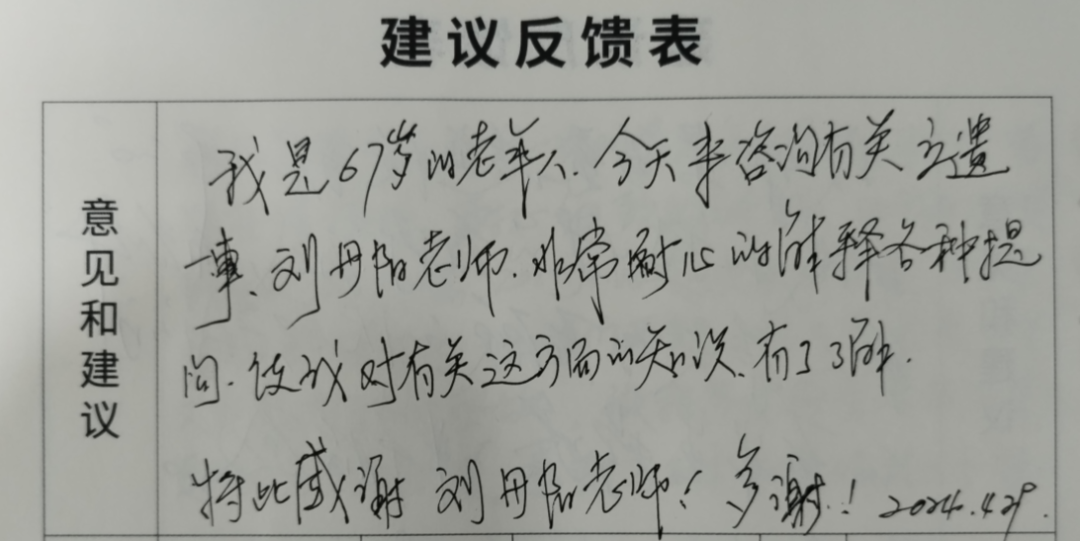 建议反馈表
意见和建议
我是67岁的老年人.今天来咨询有关立遗
事、刘丹阳老师.非常耐心的解释各种提
问.使我对有关这方面的知识.有了了解.
特此感谢 刘丹阳老师!多谢!2024.4.29.